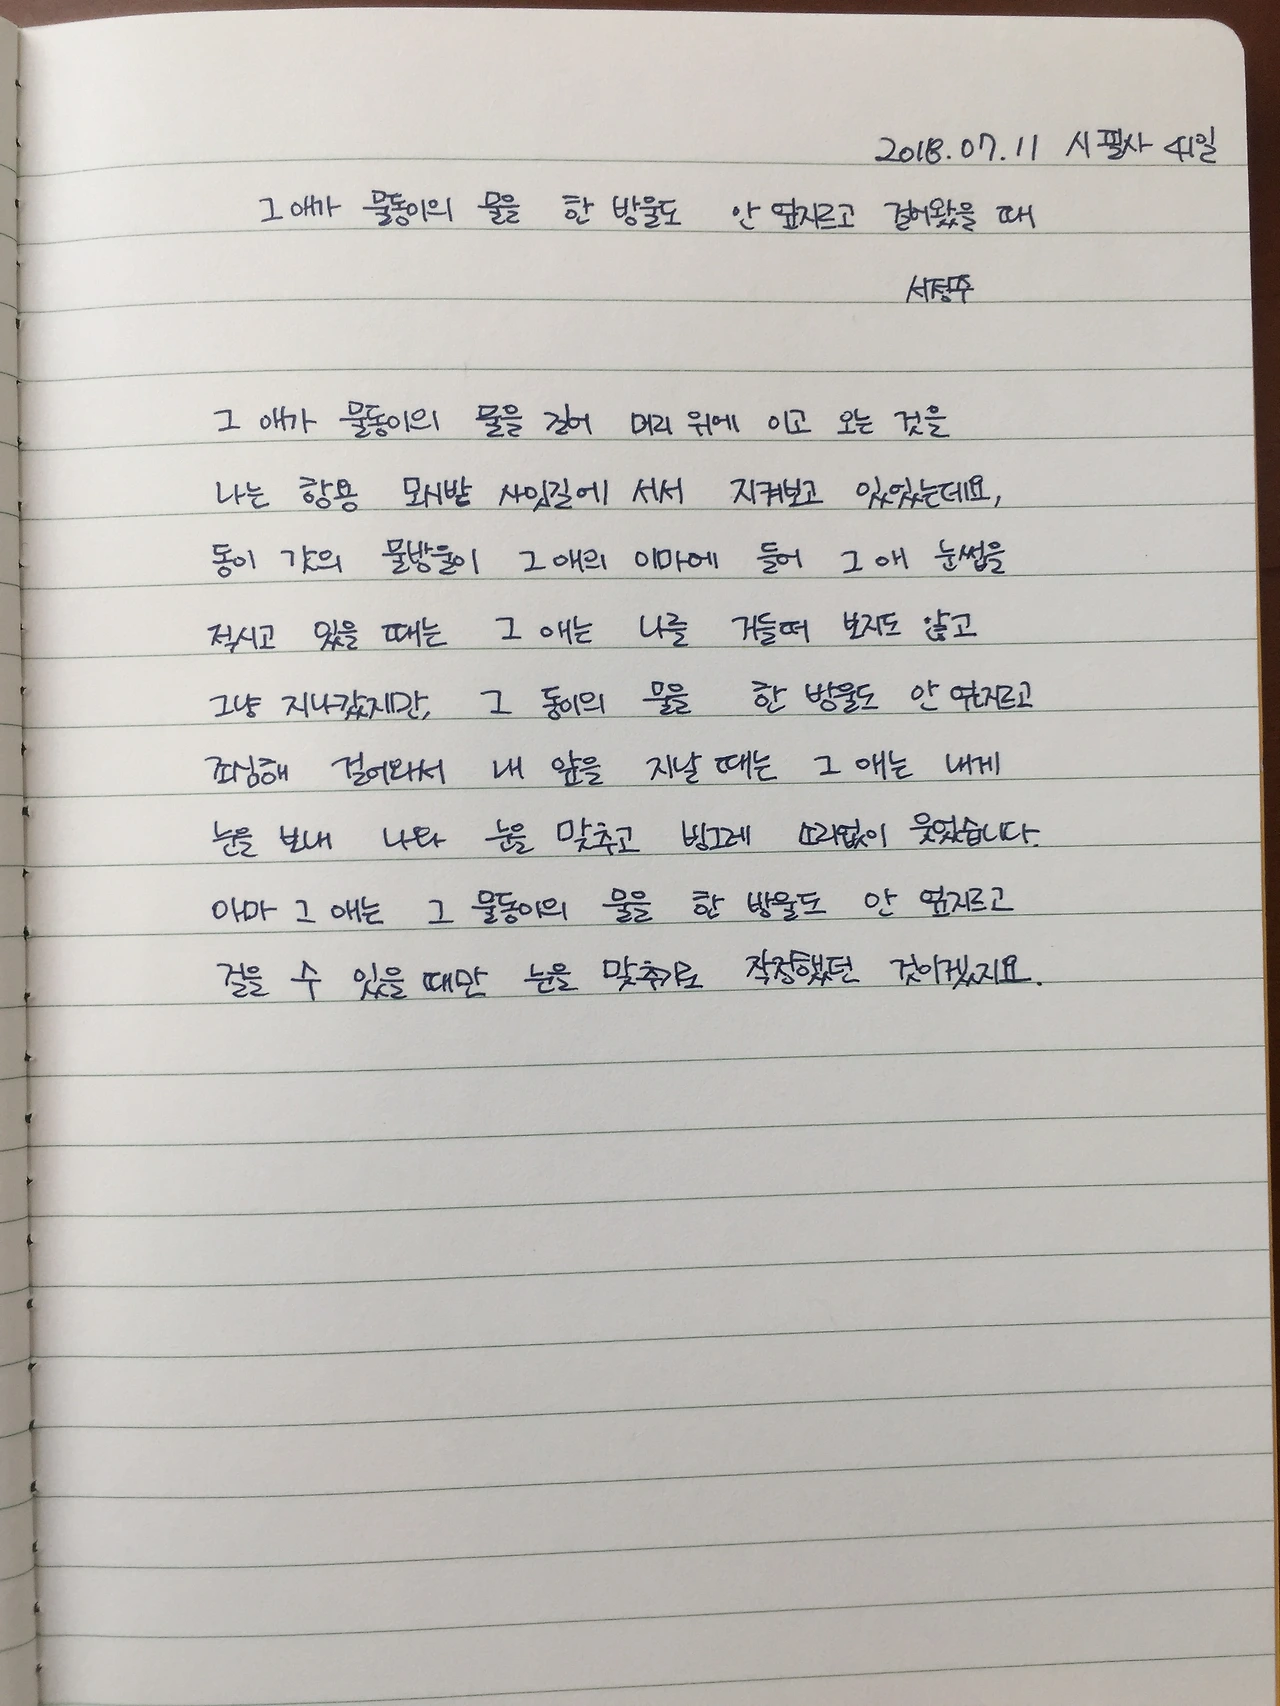 2018.07.11 시필사 41일
그 애가 물동이의 물을 한 방울도 안 엎지르고 걸어왔을 때
서정주
그 애가 물동이의 물을 길어 머리 위에 이고 오는 것을
나는 항용 모시밭 사잇길에 서서 지켜보고 있었는데요,
동이 갓의 물방울이 그 애의 이마에 들어 그 애 눈썹을
적시고 있을 때는 그 애는 나를 거들떠 보지도 않고
그냥 지나갔지만, 그 동이의 물을 한 방울도 안 엎지르고
조심해 걸어와서 내 앞을 지날 때는 그 애는 내게
눈을 보내 나와 눈을 맞추고 빙그레 소리없이 웃었습니다.
아마 그 애는 그 물동이의 물을 한 방울도 안 엎지르고
걸을 수 있을 때만 눈을 맞추기로 작정했던 것이겠지요.